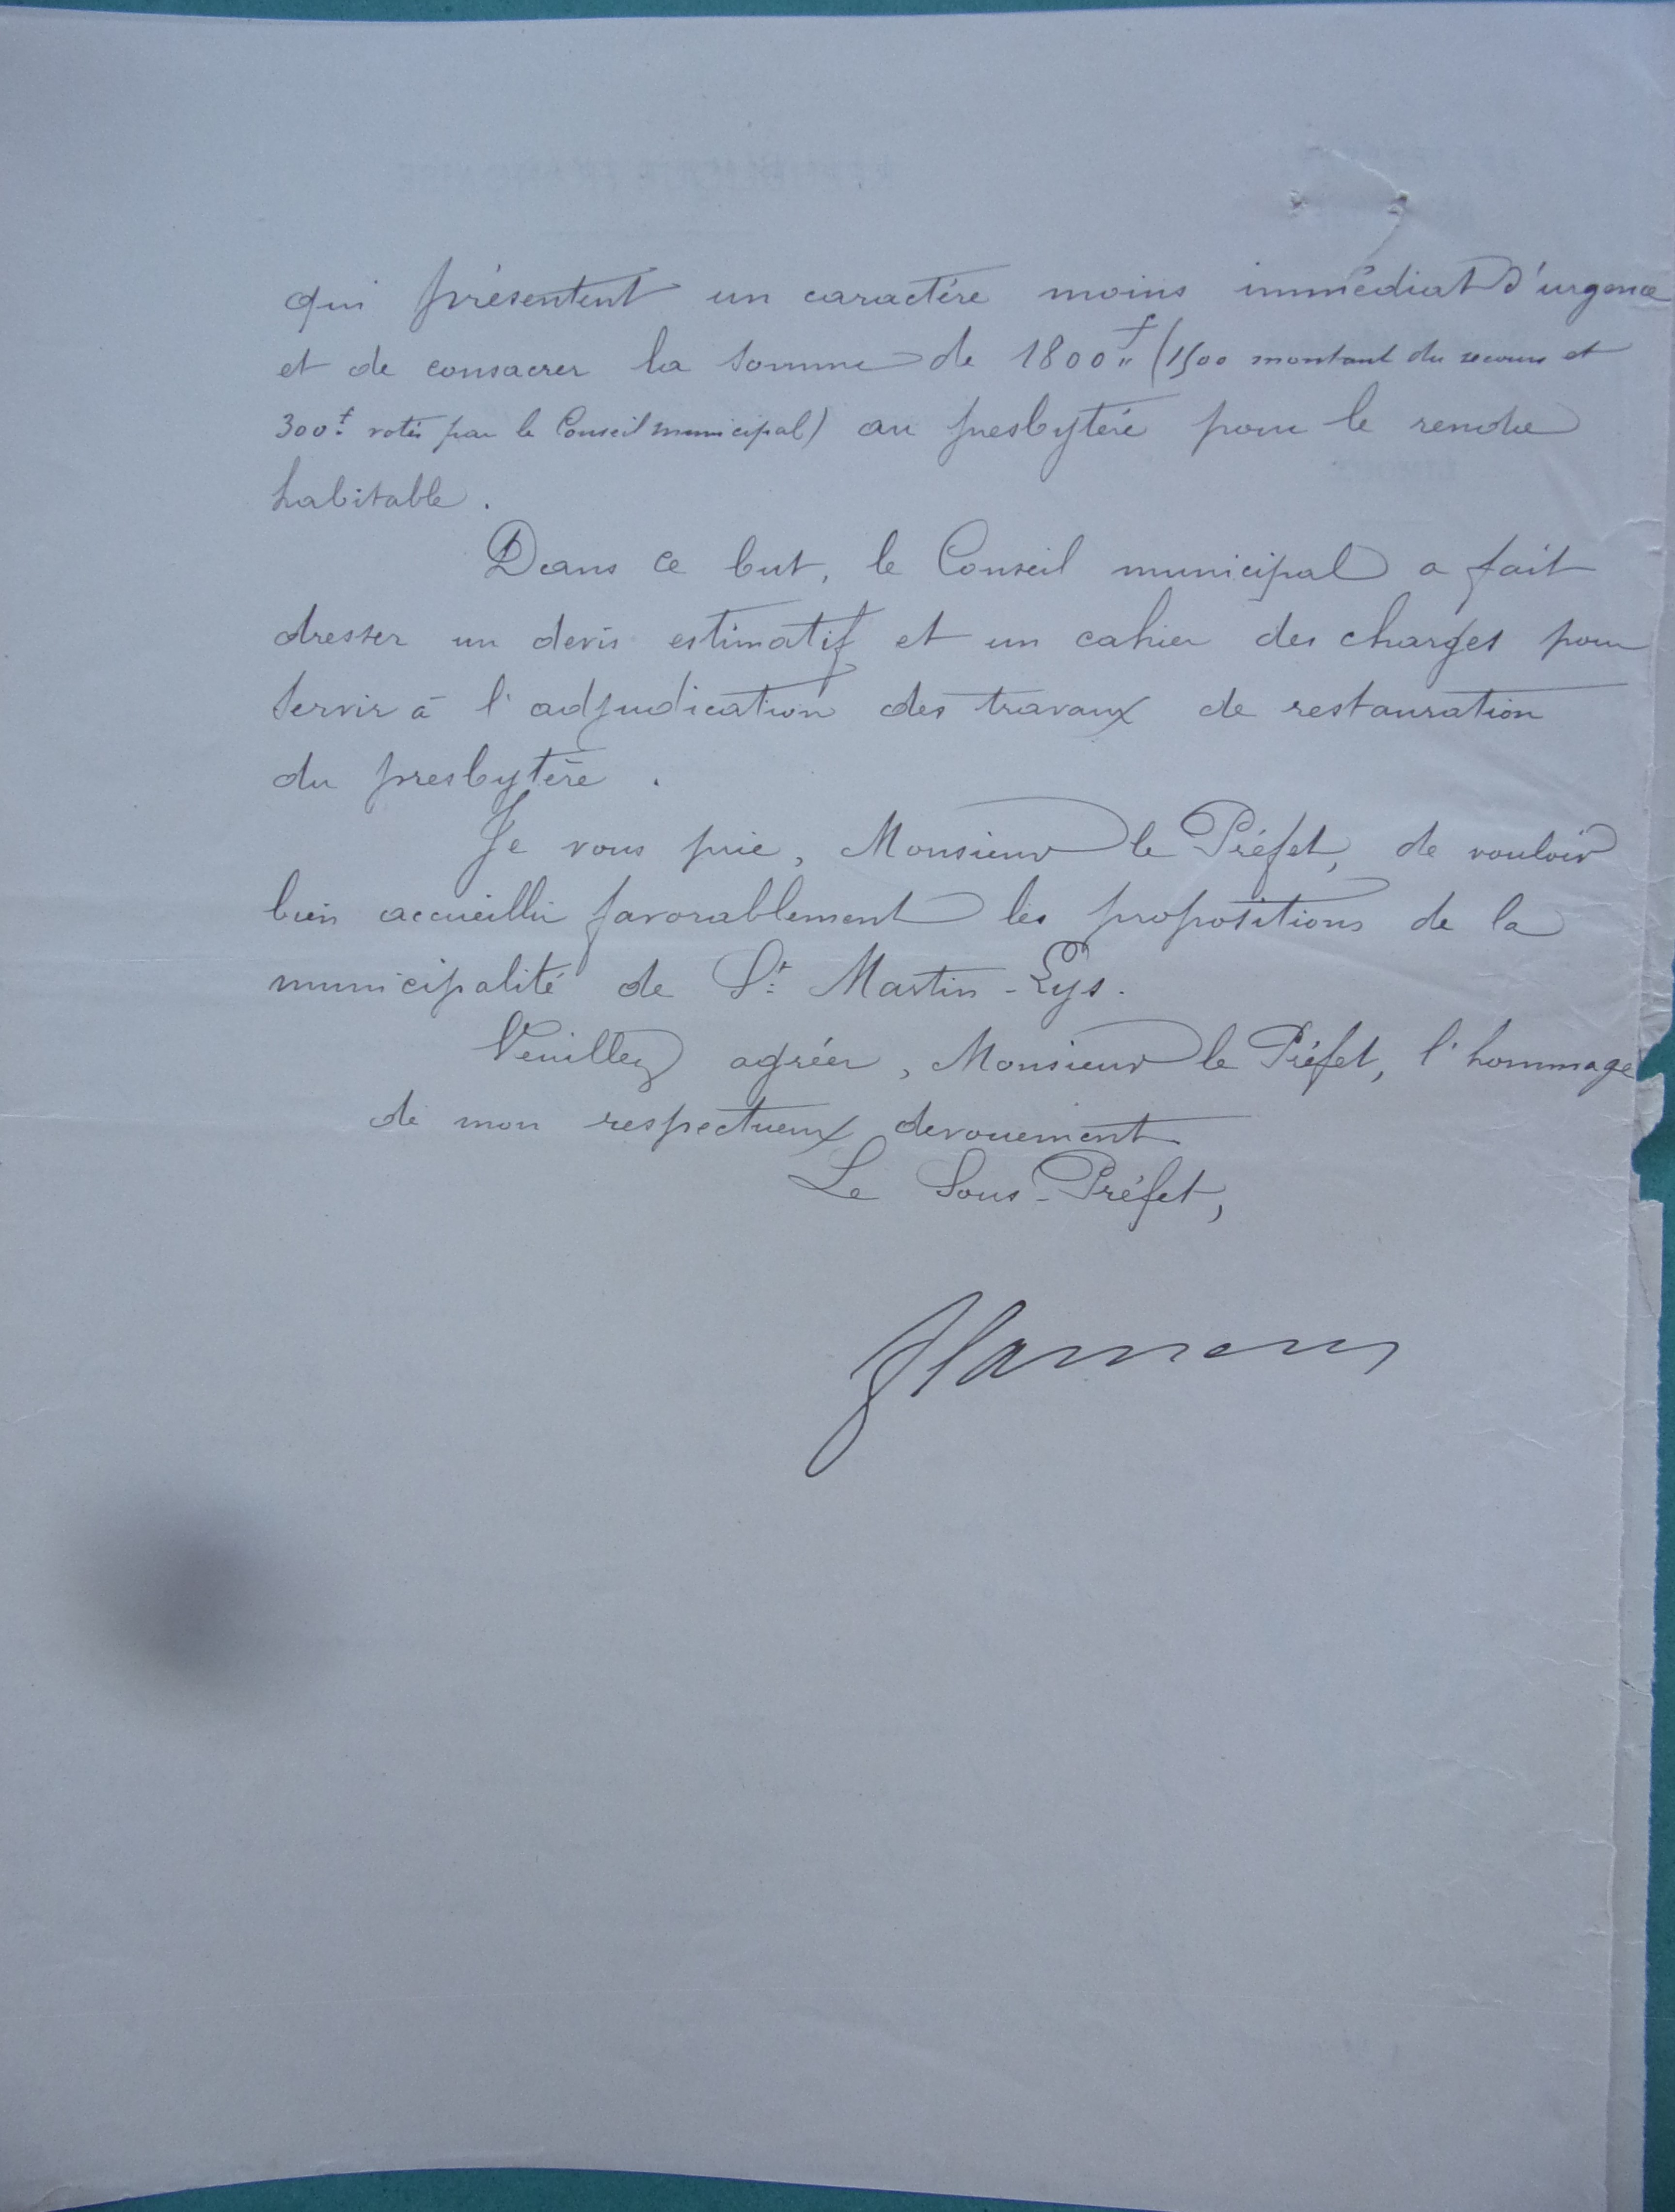 qui présentent un caractère moins immédiat d'urgence
et de consacrer la somme de 1800f" (1500 montant du secours et
300f. votés par le Conseil municipal) au presbytère pour le rendre
habitable.
Dans ce but, le Conseil municipal a fait
dresser un devis estimatif et un cahier des charges pour
servir à l'adjudication des travaux de restauration
du presbytère.
Je vous prie, Monsieur le Préfet, de vouloir
bien accueillir favorablement les propositions de la
municipalité de St. Martin-Lys.
Veuillez agréer, Monsieur le Préfet, l'hommage
de mon respectueux devouement
Le Sous-Préfet,